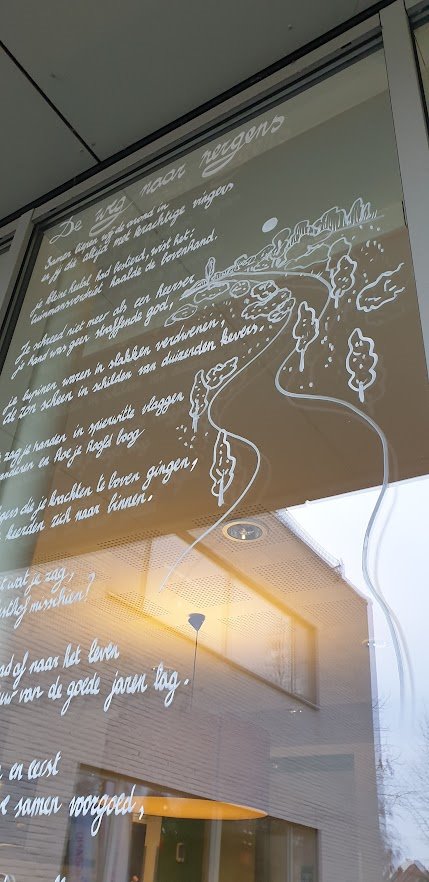 De weg naar nergens
Samen liepen wij de avond in
en jij die altijd met krachtige vingers
je kleine hadst had bestand, wist het:
tuinmansverdriet haalde de bovenhand.
Je scheed niet meer als een heerser
je hand was geen straffende god,
je lupinen waren in slakken verdwenen,
de zon scheen in schilden van duizenden kevers.
zag je handen in spierwitte vlaggen
en hoe je hoofd boog
die je krachten te boven gingen,
keerden zich naar binnen.
wat je zag,
misschien?
of naar het leven
van de goede jaren lag.
en eerst
samen voorgoed,